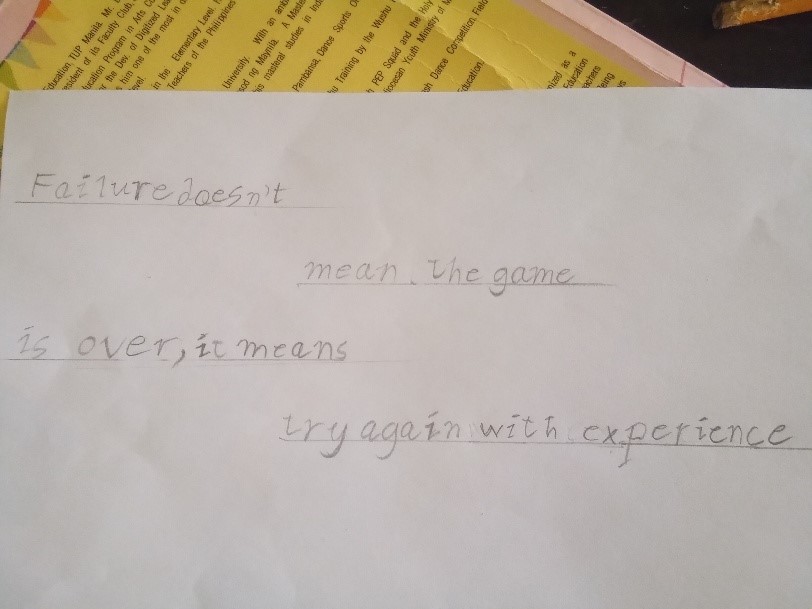 Education, TUP Manila, Mr.
esident of its Faculty Club.
ucation Program in Arts
the Dev of Digitized
him one of the most in
evel.
in the Elementary Level.
Teachers of the Philippines
University. With an
sod ng Maynila, A
his masteral studies in
Pambansa, Dance Sports
Training by the Wushu
PEP Squad and the Holy
Youth Ministry of
Dance Competition, Field
Education.
as a
Education
Failure doesn't
mean. the game
is over, it means
try again with experience